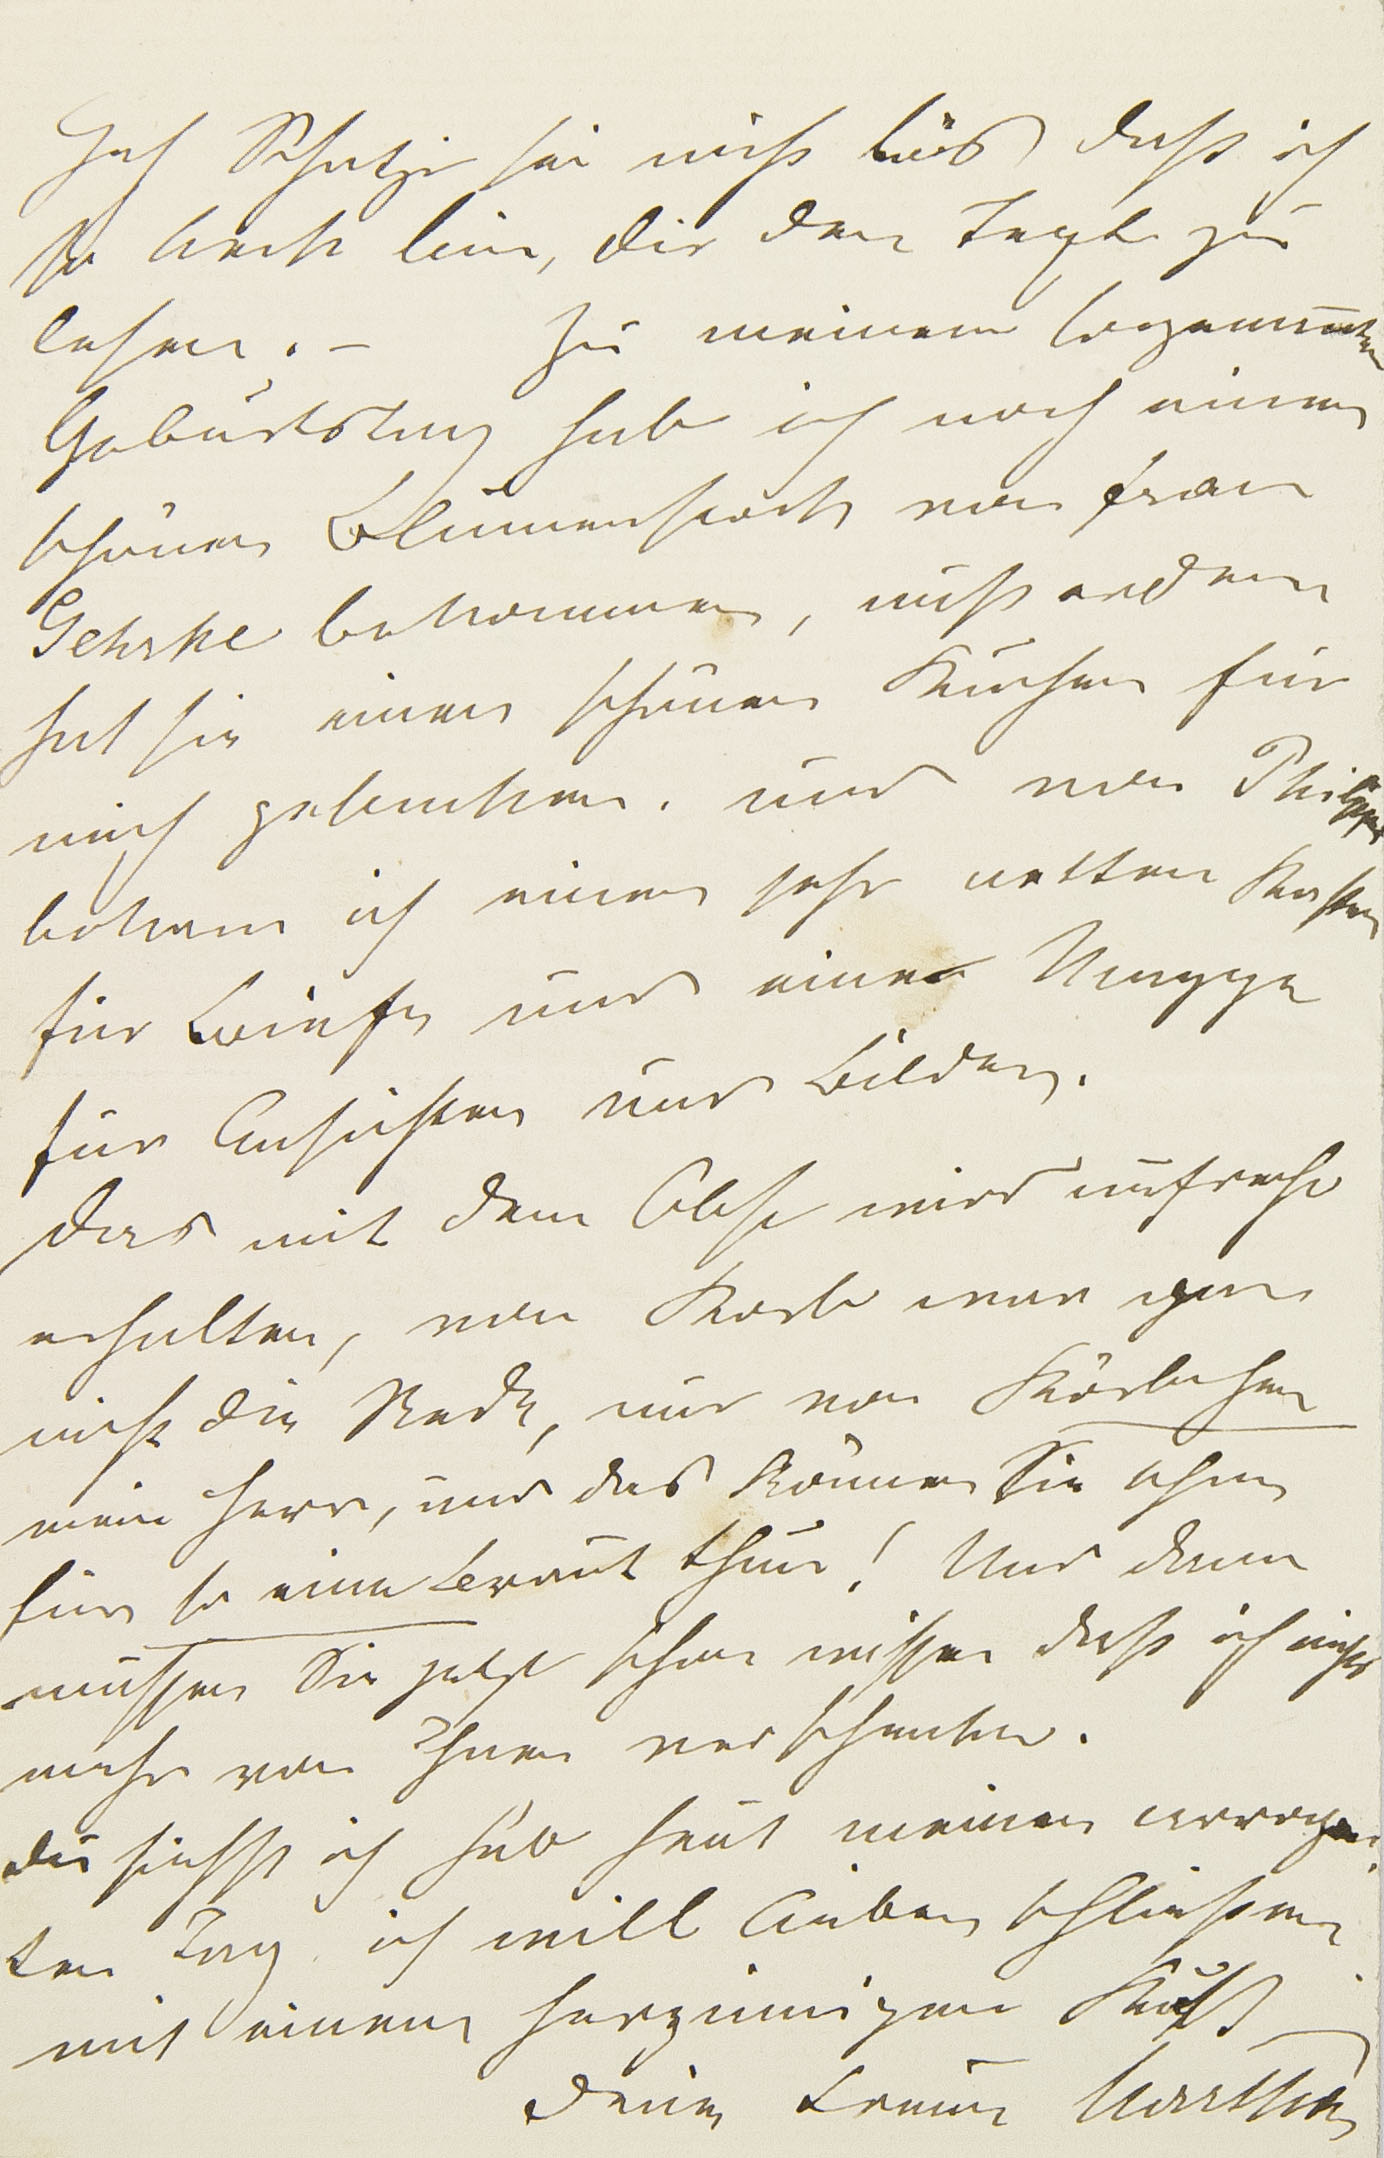 Geh Schatzi sei nicht bös daß ich
so keck bin, dir den Text zu
lesen. – Zu meinem sogenannten
Geburtstag hab ich noch einen
schönen Blumenstock von Frau
Gehrke bekommen, außerdem
hat sie einen schönen Kuchen für
mich gebacken. und von Philipps
bekam ich einen sehr netten Kasten
für Briefe und eine Mappe
für Ansichten und Bilder.
Das mit dem Obst wird aufrecht
erhalten, von Korb war gar
nicht die Rede, nur von Körbchen
mein Herr, und das können Sie schon
für so eine Braut thun! Und dann
müssen Sie jetzt schon wissen daß ich nichts
mehr von Ihnen verschenke.
Du siehst ich hab heut meinen arrogan-
ten Tag ich will lieber schließen
mit einem herzinnigen Kuß
Deine treue Marthe